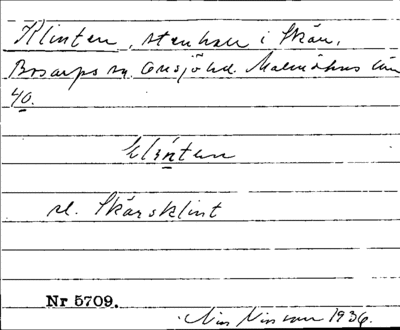 Klinten, stenhau i Skån,
Bosarps sn. Onsjö hd. Malmöhus län
40.
klinten
sl. Skärsklint
Nr 5709.
Nils Nilsson 1936.